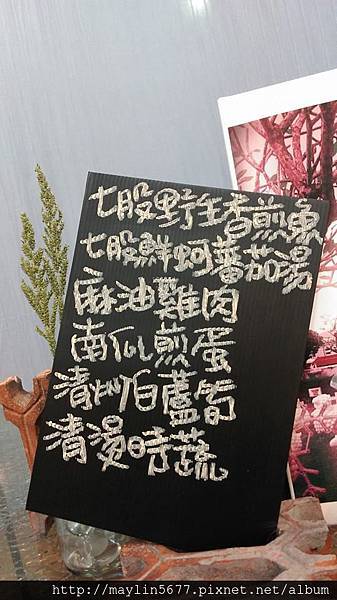 七股野生香煎魚
七股鮮蚵蕃茄湯
麻油雞肉
南瓜煎蛋
清炒伯蘆筍
清燙時蔬
http://maylin5677.pixnet.net/album